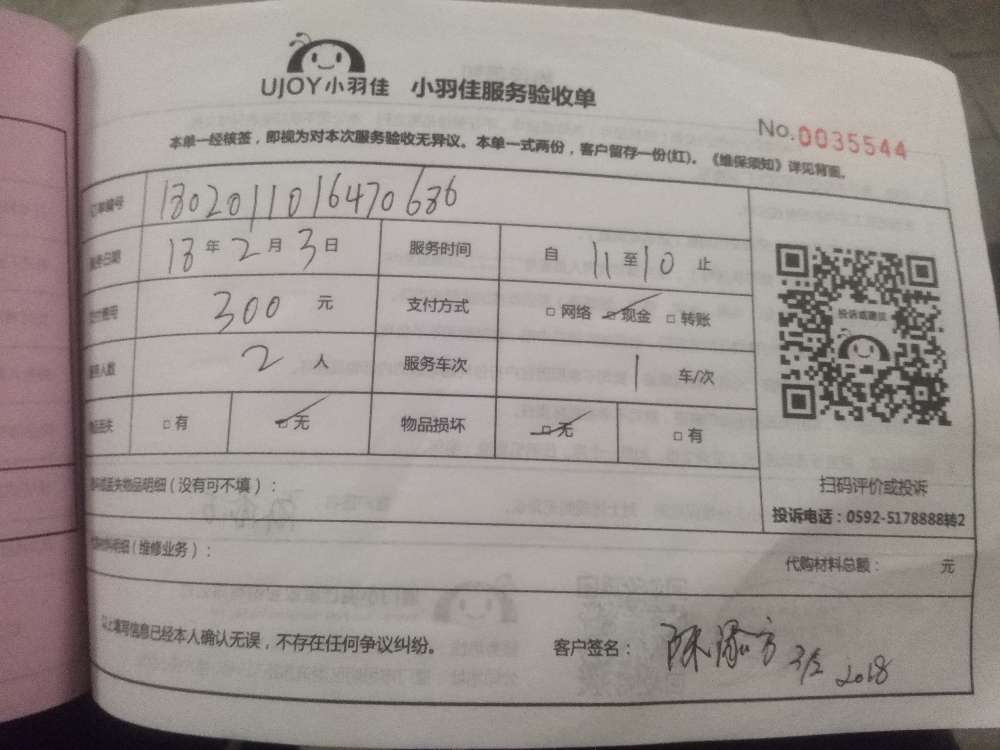 UJOY小羽佳 小羽佳服务验收单
No.0035544
本单一经核签，即视为对本次服务验收无异议。本单一式两份，客户留存一份(红)。《维保须知》详见背面。
订单编号 1802011016470686
服务日期 18 年 2 月 3 日 服务时间 自 11 至 10 止
支付费用 300 元 支付方式 □ 网络 □ 现金 □ 转账
服务人数 2 人 服务车次 1 车/次
物品丢失 □ 有 □ 无 物品损坏 □ 无 □ 有
投诉或建议
扫码评价或投诉
投诉电话：0592-5178888转2
损坏或丢失物品明细（没有可不填）：
代购材料明细（维修业务）： 代购材料总额： 元
以上填写信息已经本人确认无误，不存在任何争议纠纷。 客户签名： 陈 方 3/2 2018